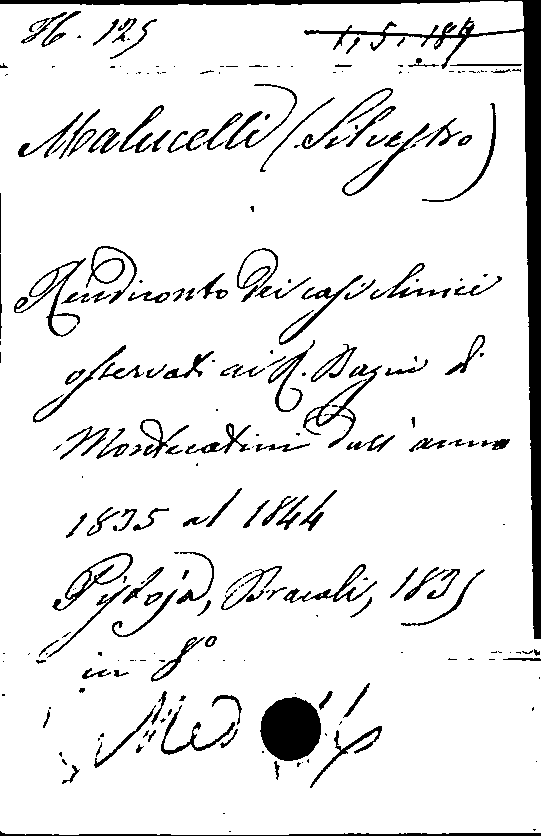 H. 125 1, 5, 189
Malucelli (Silvestro)
Rendiconto dei casi clinici
osservati ai R. Bagni di
Montecatini dall' anno
1835 al 1844
Pistoja, Bracali, 1835
in 8°
Med